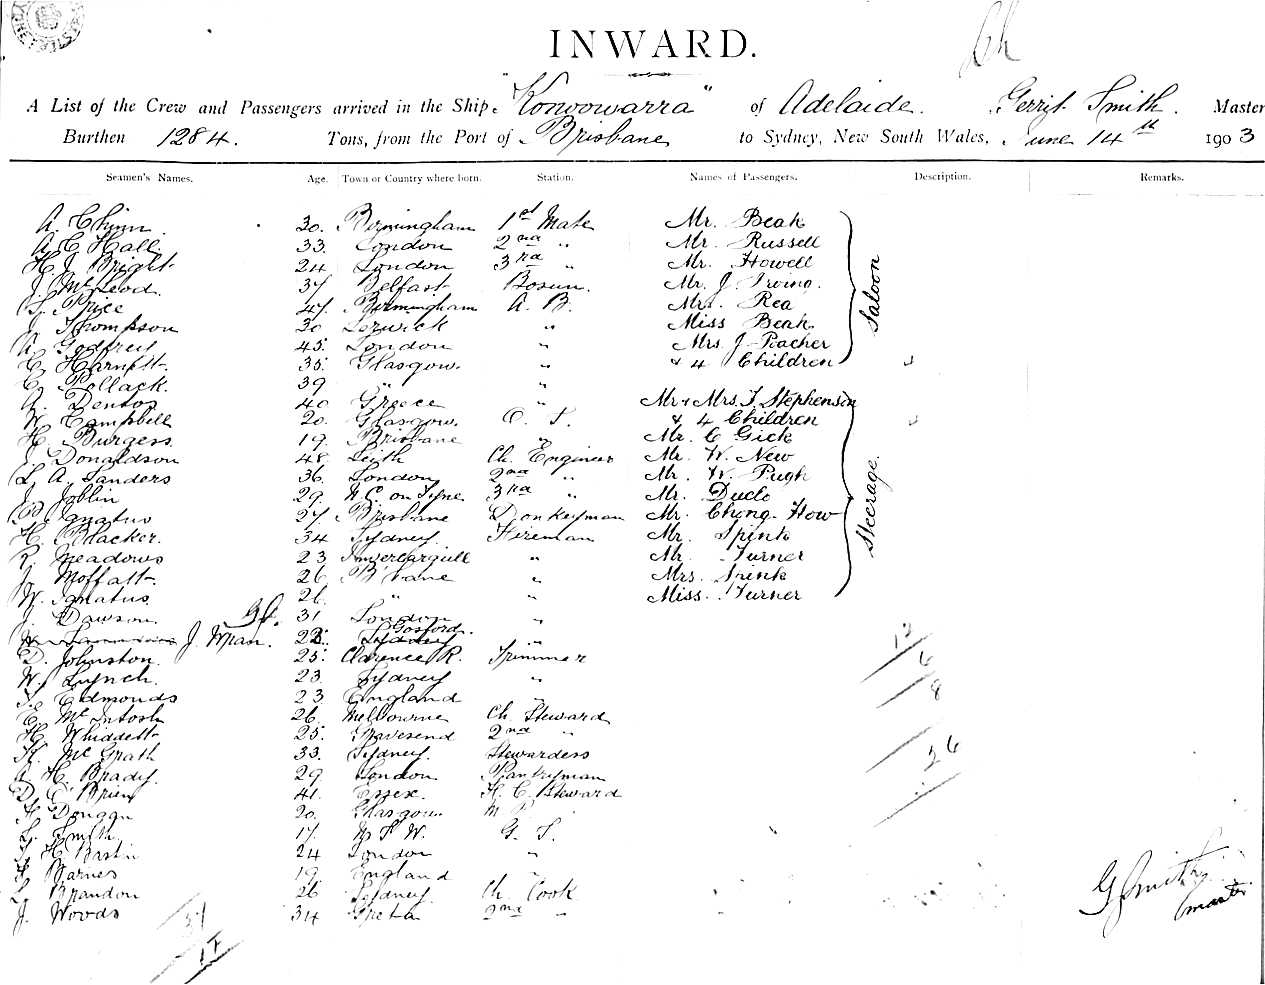 INWARD.
A List of the Crew and Passengers arrived in the Ship "Konoowarra" of Adelaide. Gerrit Smith. Master
Burthen 1284. Tons, from the Port of Brisbane to Sydney, New South Wales, June 14th 1903
Seamen's Names. Age. Town or Country where born. Station. Names of Passengers. Description. Remarks.
A. Chinn. 30. Birmingham 1st Mate Mr. Beak
A. E. Hall. 33. London 2nd " Mr. Russell
H. J. Bright 24 London 3rd " Mr. Howell
J. McLeod. 37 Belfast Bosun. Mr. J. Irving.
Price 47. Birmingham A. B. Mrs. Rea
J. Thompson 30 Lerwick " Miss Beak
A. Godfrey 45. London " Mrs J. Poacher
C. Harnett 35. Glasgow. " & 4 Children
Saloon
C. Pollack. 39 " "
A. Dentos 40 Greece " Mr & Mrs. T. Stephenson
W. Campbell 20. Glasgow. O. S. & 4 Children
H. Burgess. 19. Brisbane " Mr. C Gick
J. Donaldson 48. Leith Ch. Engineer Mr. W. New
L. A. Sanders 36. London 2nd " Mr. W. Pugh
J. Joblin 29. N. C. on Tyne 3rd " Mr. Dudo
Ignatus 27. Brisbane Donkeyman Mr. Chong How
H. Blacker. 34 Sydney. Fireman Mr. Spink
R. Meadows 23 Invercargill " Mr. Turner
J. Moffatt 26 B'bane " Mrs. Spink
W. Ignatus. 26. " " Miss. Turner
Steerage.
J. Dawson. 31 London "
J. 22. Gosford. Sydney "
D. Johnston. 25. Clarence R. Trimmer
W. Lynch. 23. Sydney "
Edmonds 23 England "
C. McIntosh 26. Melbourne Ch. Steward
H. Whiddett 25. Gravesend 2nd "
K. McGrath 33. Sydney. Stewardess
H. Brady. 29. London Pantryman
D. O'Brien 41. Essex. F. C. Steward
20. Glasgow.
L. Smith. 17. N S W. G. S.
H Bastin 24 London "
Barnes 19. England "
Brandon 26 Sydney. Ch. Cook
J. Woods 34 Greta 2nd "
12
6
8
26
37
17
G Smith
Master